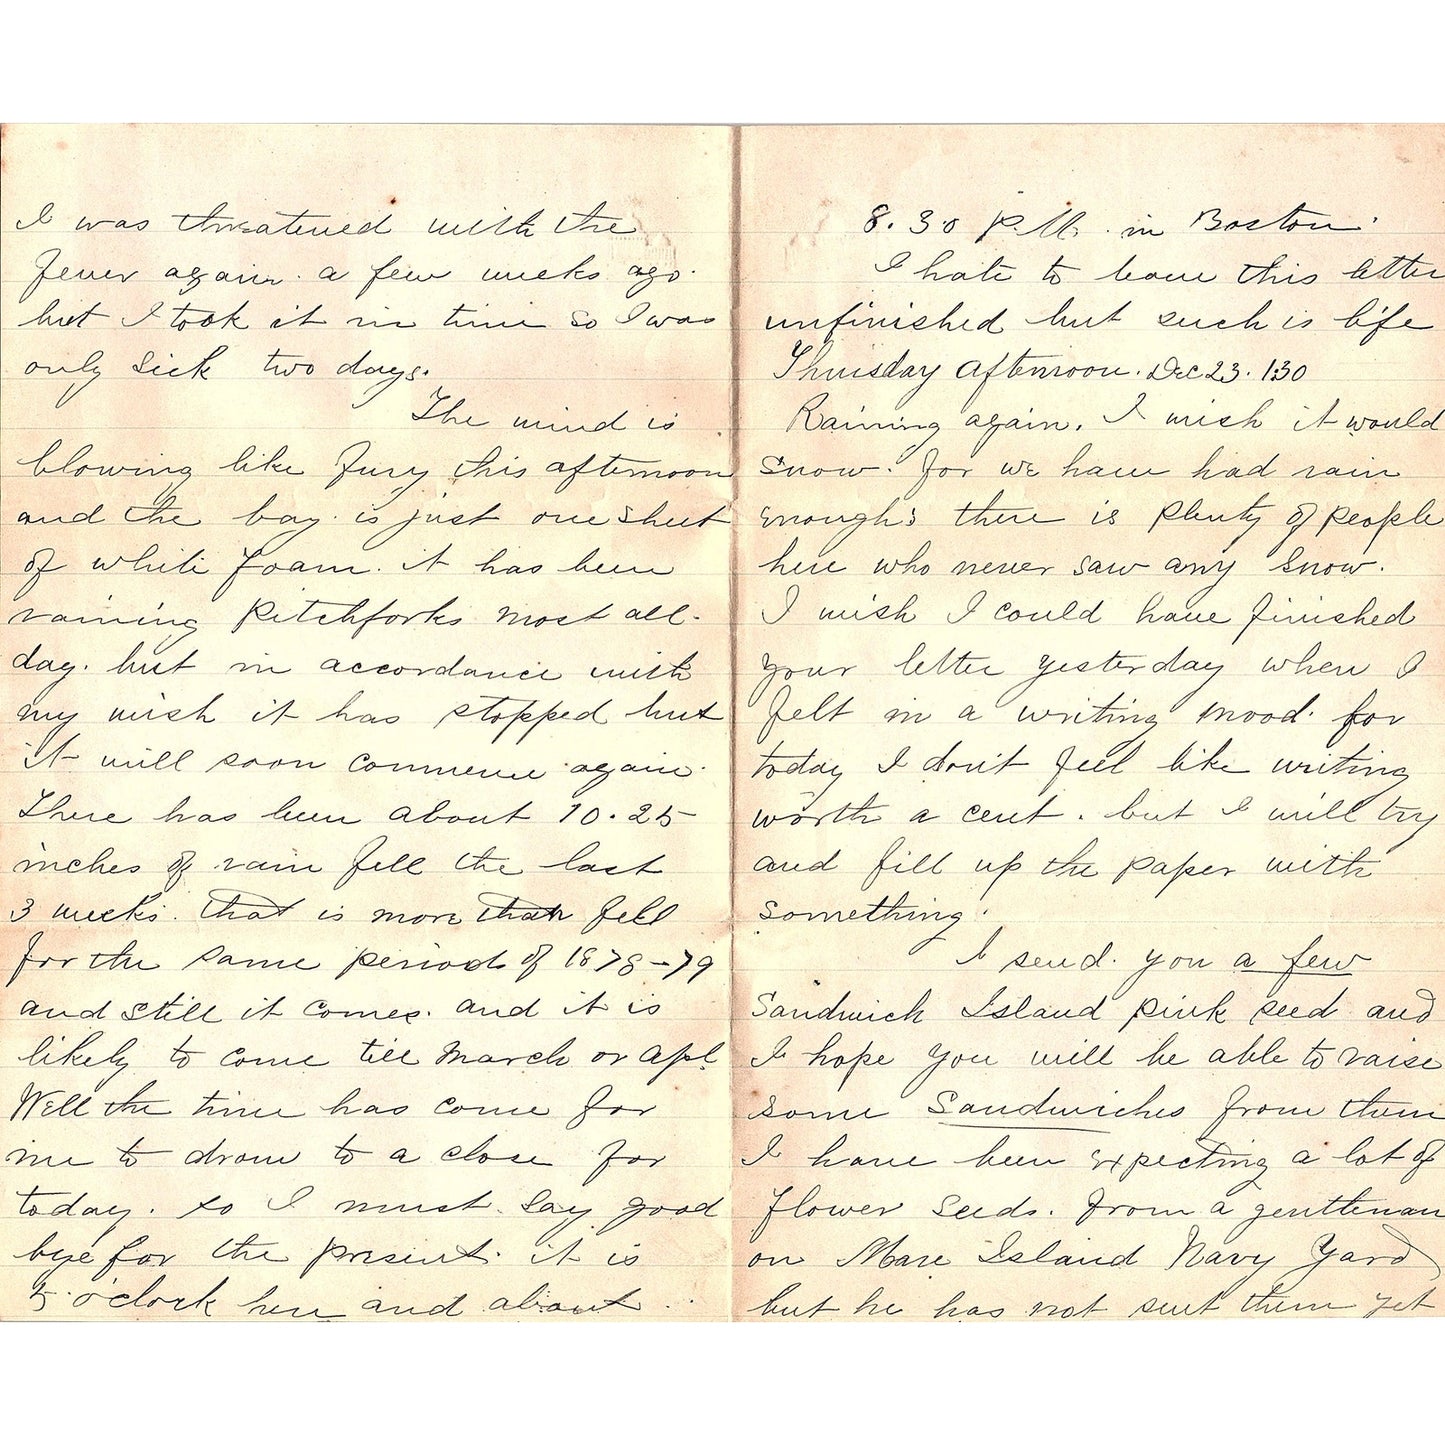 I was threatened with the
fever again. a few weeks ago.
but I took it in time so I was
only sick two days.
The wind is
blowing like fury this afternoon
and the bay. is just one sheet
of white foam. it has been
raining pitchforks most all-
day. but in accordance with
my wish it has stopped but
it will soon commence again.
There has been about 10.25
inches of rain fell the last
3 weeks. that is more than fell
for the same period of 1878-79
and still it comes. and it is
likely to come till March or Apl.
Well the time has come for
me to draw to a close for
today. so I must say good
bye for the present. it is
5. o'clock here and about
8.30 P.M. in Boston.
I hate to leave this letter
unfinished but such is life
Thursday afternoon. Dec 23. 1.30
Raining again. I wish it would
snow. for we have had rain
enough; there is plenty of people
here who never saw any snow.
I wish I could have finished
your letter yesterday when I
felt in a writing mood. for
today I don't feel like writing
worth a cent. but I will try
and fill up the paper with
something.
I send. you a few
Sandwich Island pink seed and
I hope you will be able to raise
some Sandwiches from them
I have been expecting a lot of
flower seeds. from a gentleman
on Mare Island Navy Yard
but he has not sent them yet